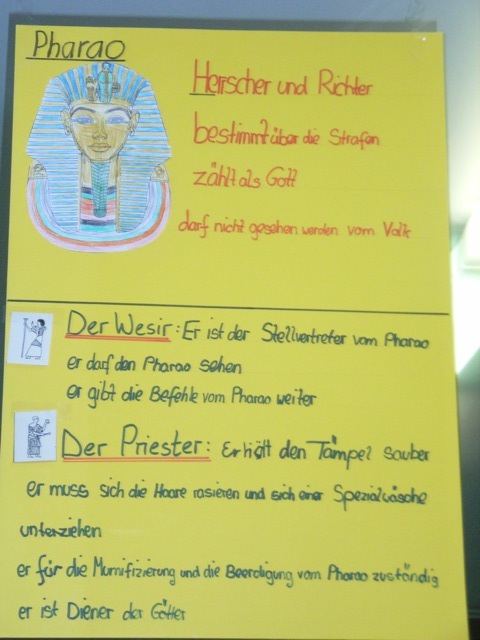 Pharao
Herrscher und Richter
bestimmt über die Strafen
zählt als Gott
darf nicht gesehen werden vom Volk
Der Wesir: Er ist der Stellvertreter vom Pharao
er darf den Pharao sehen
er gibt die Befehle vom Pharao weiter
Der Priester: Er hält den Tämpel sauber
er muss sich die Haare rasieren und sich einer Spezialwäsche
unterziehen
er für die Mumifizierung und die Beerdigung vom Pharao zuständig
er ist Diener der Götter